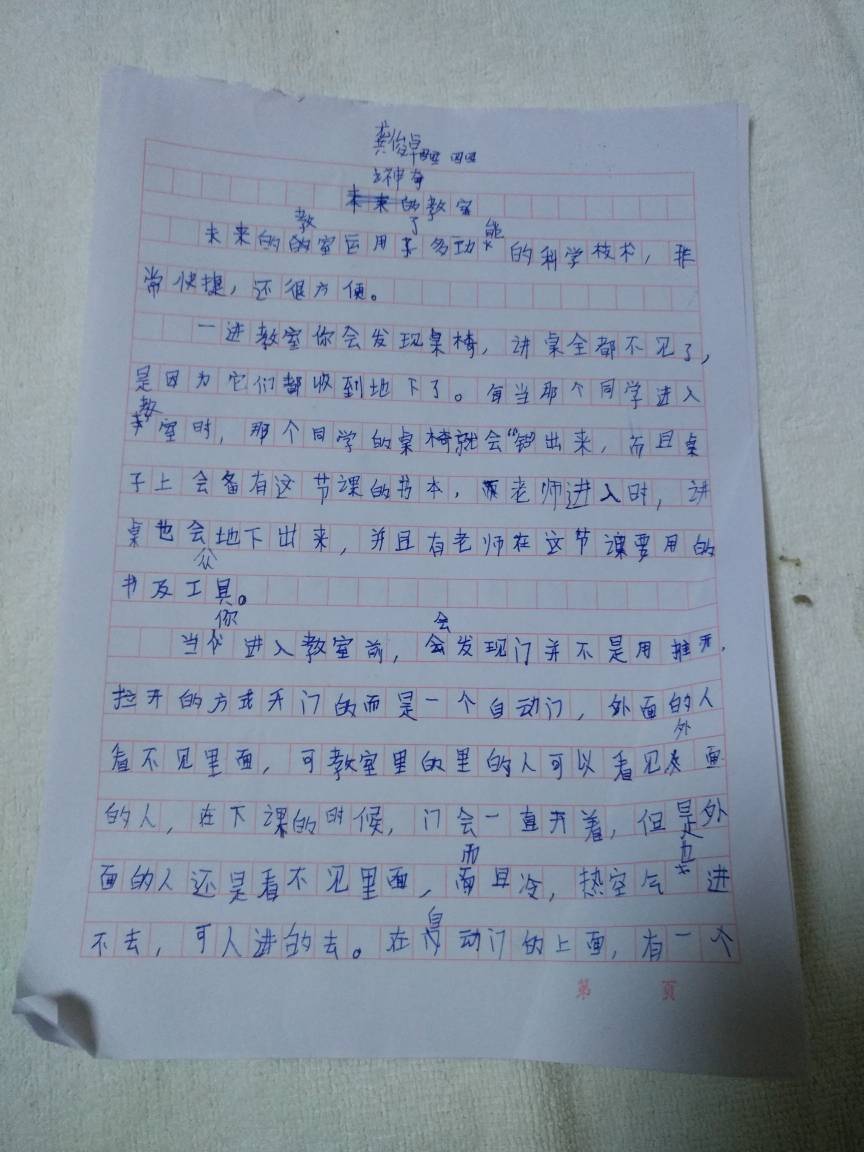 龚俊卓
神奇
的教室
未来的教室运用了多功能的科学技术，非
常快捷，还很方便。
一进教室你会发现桌椅，讲桌全都不见了，
是因为它们都收到地下了。每当那个同学进入
教室时，那个同学的桌椅就会“ ”出来，而且桌
子上会备有这节课的书本，老师进入时，讲
桌也会从地下出来，并且有老师在这节课要用的
书及工具。
当你进入教室前，会发现门并不是用推开，
拉开的方式开门的而是一个自动门，外面的人
看不见里面，可教室里的里的人可以看见外面
的人，在下课的时候，门会一直开着，但是外
面的人还是看不见里面，而且冷，热空气 进
不去，可人进的去。在自动门的上面，有一个
第 頁